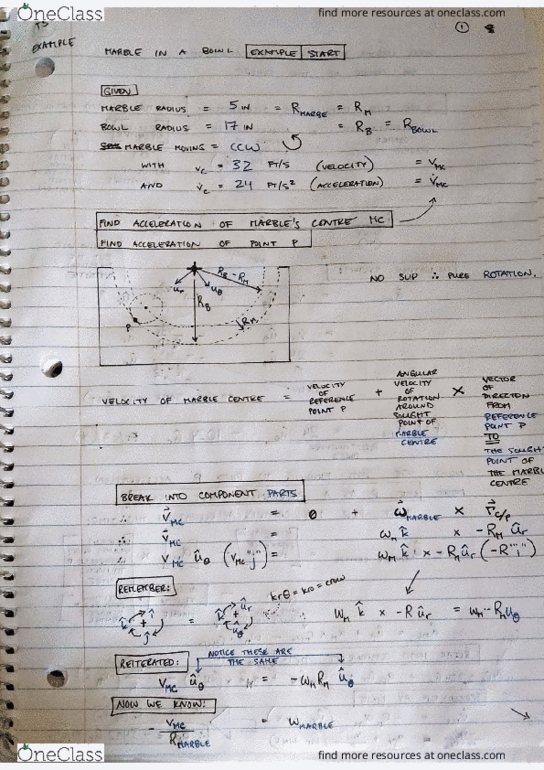 OneClass
find more resources at oneclass.com
EXAMPLE
①
MARBLE IN A BOWL EXAMPLE START
GIVEN
MARBLE RADIUS = 5 IN = R_MARBLE = R_M
BOWL RADIUS = 17 IN = R_B = R_BOWL
MARBLE MOVING = CCW
WITH v_c = 32 FT/S (VELOCITY) = V_MC
AND v̇_c = 24 FT/S² (ACCELERATION) = V̇_MC
FIND ACCELERATION OF MARBLE'S CENTRE MC
FIND ACCELERATION OF POINT P
NO SLIP ∴ PURE ROTATION.
R_B - R_M
u_r
u_θ
R_B
P
R_M
VELOCITY OF MARBLE CENTRE = VELOCITY OF REFERENCE POINT P + ANGULAR VELOCITY OF ROTATION AROUND SOUGHT POINT OF MARBLE CENTRE × VECTOR OF DIRECTION FROM REFERENCE POINT P TO THE SOUGHT POINT OF THE MARBLE CENTRE
BREAK INTO COMPONENT PARTS
∴ V_MC = 0 + ω_MARBLE × r_C/P
∴ V_MC = ω_M k̂ × -R_M û_r
∴ V_MC û_θ (V_MC "j") = ω_M k̂ × -R_M û_r (-R "i")
REMEMBER:
krθ = kro = crow
k̂ + î ĵ = k̂ + û_r û_θ
ω_M k̂ × -R û_r = ω_M -R_M u_θ
REITERATED:
NOTICE THESE ARE THE SAME
V_MC û_θ = -ω_M R_M û_θ
NOW WE KNOW:
- V_MC / R_MARBLE = ω_MARBLE
OneClass
find more resources at oneclass.com